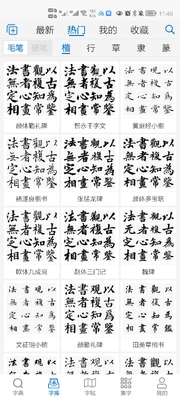 最新
热门
我的
收藏
毛笔
硬笔
楷
行
草
隶
篆
以古為鑒
觀複知常
書者心畫
法無定相
颜体勤礼碑
以古為鑒
觀複知常
書者心畫
法無定相
智永千字文
以古為鑒
觀複知常
書者心畫
法無定相
黄庭经小楷
以古為鑒
觀複知常
書者心畫
法無定相
褚遂良楷书
以古為鑒
觀複知常
書者心畫
法無定相
张猛龙碑
以古為鑒
觀複知常
書者心畫
法無定相
颜体多宝塔
以古為鑒
觀複知常
書者心畫
法無定相
欧体九成宫
以古為鑒
觀複知常
書者心畫
法無定相
赵体三门记
以古為鑒
觀複知常
書者心畫
法无定相
魏碑
以古為鑒
觀複知常
書者心畫
法無定相
文征明小楷
以古為鑒
觀複知常
書者心畫
法無定相
颜勤礼碑
以古為鑒
觀複知常
書者心畫
法無定相
田英章楷书
法書觀以
法書觀以
法書觀以
字典
字库
字帖
集字
我的